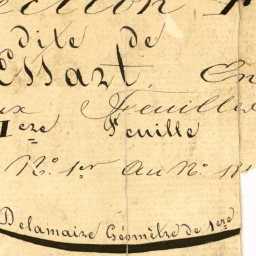 ction
dite de
Essart. En
ux Feuilles
1ere Feuille
N.° 1er Au N.°
Delamaire Géomètre de 1ere